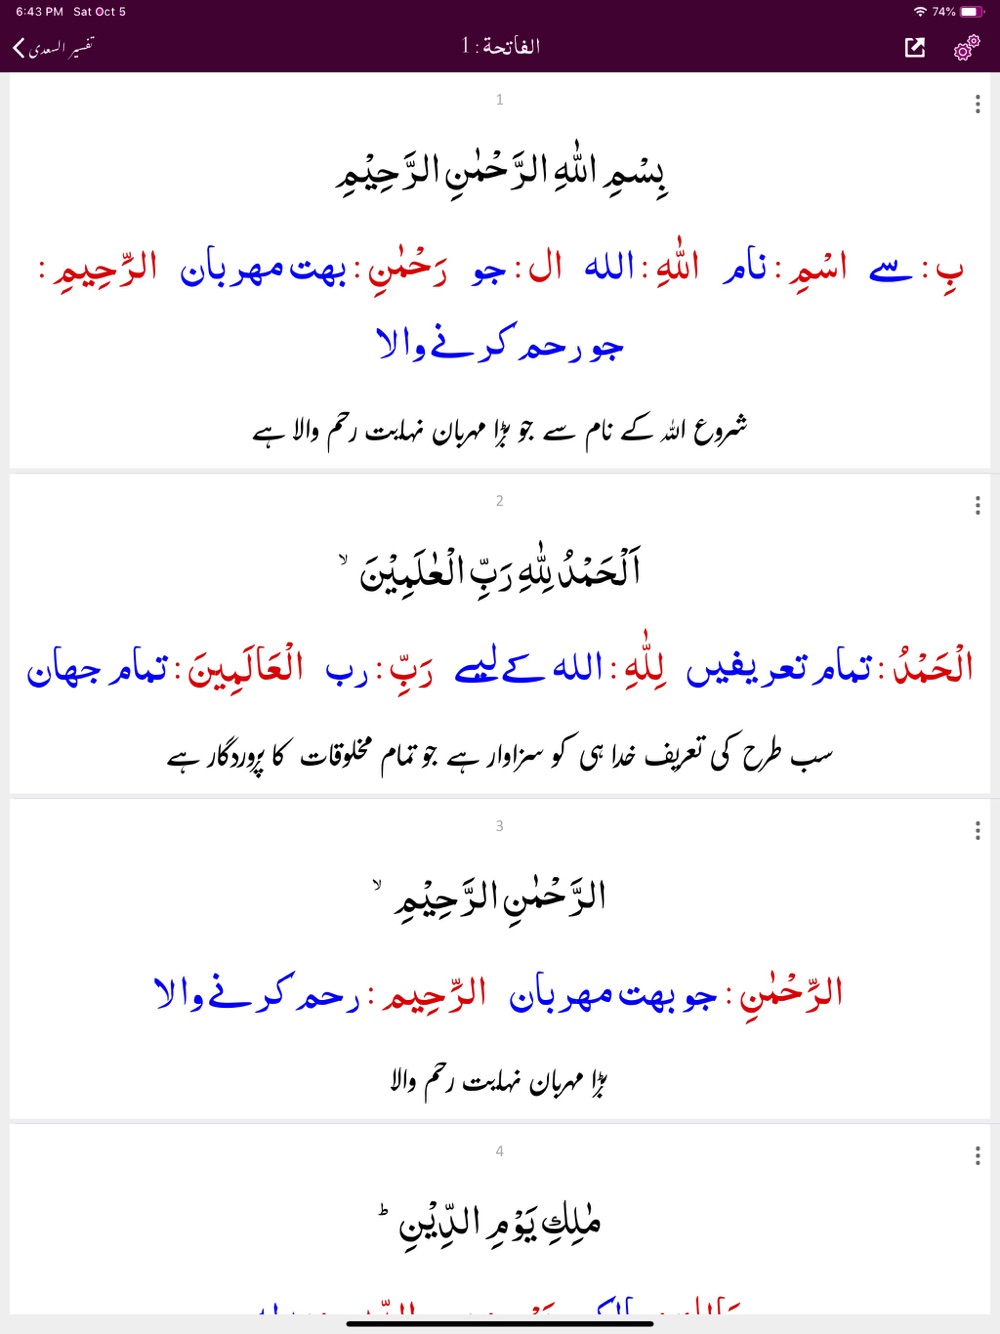 6:43 PM Sat Oct 5 74%
تفسیر السعدی الفاتحة : 1
1
بِسْمِ اللّٰهِ الرَّحْمٰنِ الرَّحِيْمِ
بِ : سے اسْمِ : نام اللّٰهِ : الله ال : جو رَحْمٰنِ : بهت مهربان الرَّحِيمِ :
جو رحم کرنے والا
شروع الله کے نام سے جو بڑا مہربان نہایت رحم والا ہے
2
اَلْحَمْدُ لِلّٰهِ رَبِّ الْعٰلَمِيْنَ ۙ
الْحَمْدُ : تمام تعریفیں لِلّٰهِ : الله کے لیے رَبِّ : رب الْعَالَمِينَ : تمام جهان
سب طرح کی تعریف خدا ہی کو سزاوار ہے جو تمام مخلوقات کا پروردگار ہے
3
الرَّحْمٰنِ الرَّحِيْمِ ۙ
الرَّحْمٰنِ : جو بهت مهربان الرَّحِيم : رحم کرنے والا
بڑا مہربان نہایت رحم والا
4
مٰلِكِ يَوْمِ الدِّيْنِ ؕ